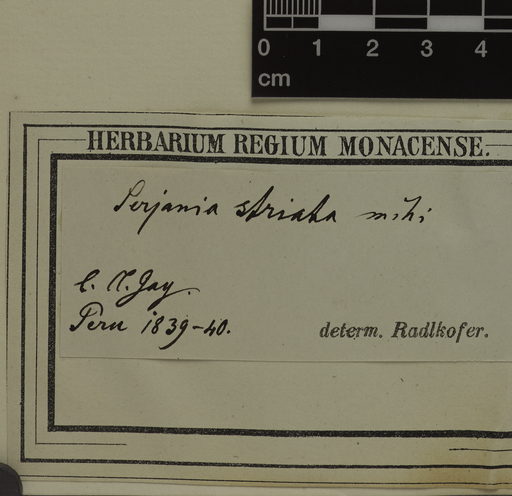 0 1 2 3 4
cm
HERBARIUM REGIUM MONACENSE.
Serjania striata mihi
C. Gay.
Peru 1839-40.
determ. Radlkofer.